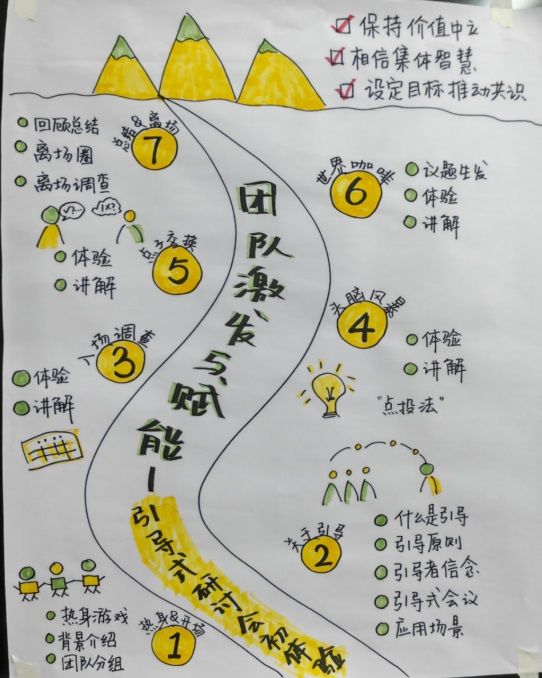 保持价值中立
相信集体智慧
设定目标推动共识
总结&离场
7
回顾总结
离场圈
离场调查
世界咖啡
6
议题生发
体验
讲解
点子交换
5
体验
讲解
头脑风暴
4
体验
讲解
"点投法"
入场调查
3
体验
讲解
关于引导
2
什么是引导
引导原则
引导者信念
引导式会议
应用场景
热身&开场
1
热身游戏
背景介绍
团队分组
团队激发与赋能-引导式研讨会初体验